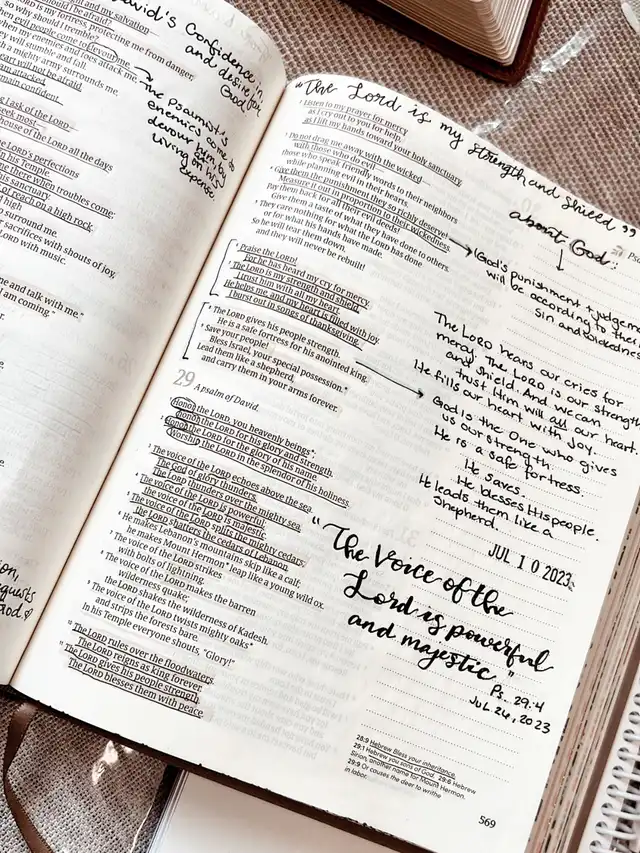 David's Confidence in
and desire for
God
light and my salvation—
so why should I be afraid?
LORD is my fortress, protecting me from danger,
so why should I tremble?
When evil people come to devour me,
when my enemies and foes attack me,
they will stumble and fall.
a mighty army surrounds me,
heart will not be afraid.
am attacked,
remain confident.
I ask of the LORD—
seek most—
house of the LORD all the days
the LORD's perfections
in his Temple.
me there when troubles come;
his sanctuary.
of reach on a high rock.
high
surround me.
sacrifices with shouts of joy,
LORD with music.
me and talk with me."
I am coming."
The Psalmist's
enemies come to
devour him by
living at his
expense.
"The Lord is my strength and shield"
Listen to my prayer for mercy
as I cry out to you for help,
as I lift my hands toward your holy sanctuary.
3 Do not drag me away with the wicked—
with those who do evil—
those who speak friendly words to their neighbors
while planning evil in their hearts.
4 Give them the punishment they so richly deserve!
Measure it out in proportion to their wickedness.
Pay them back for all their evil deeds!
Give them a taste of what they have done to others.
5 They care nothing for what the LORD has done
or for what his hands have made.
So he will tear them down,
and they will never be rebuilt!
6 Praise the LORD!
For he has heard my cry for mercy.
7 The LORD is my strength and shield.
I trust him with all my heart.
He helps me, and my heart is filled with joy.
I burst out in songs of thanksgiving.
8 The LORD gives his people strength.
He is a safe fortress for his anointed king.
9 Save your people!
Bless Israel, your special possession.*
Lead them like a shepherd,
and carry them in your arms forever.
29
A psalm of David.
1 Honor the LORD, you heavenly beings*;
honor the LORD for his glory and strength.
2 Honor the LORD for the glory of his name.
Worship the LORD in the splendor of his holiness.
3 The voice of the LORD echoes above the sea.
The God of glory thunders.
The LORD thunders over the mighty sea.
4 The voice of the LORD is powerful;
the voice of the LORD is majestic.
5 The voice of the LORD splits the mighty cedars;
the LORD shatters the cedars of Lebanon.
6 He makes Lebanon's mountains skip like a calf;
he makes Mount Hermon* leap like a young wild ox.
7 The voice of the LORD strikes
with bolts of lightning.
8 The voice of the LORD makes the barren
wilderness quake;
the LORD shakes the wilderness of Kadesh.
9 The voice of the LORD twists mighty oaks*
and strips the forests bare.
In his Temple everyone shouts, "Glory!"
10 The LORD rules over the floodwaters.
The LORD reigns as king forever.
11 The LORD gives his people strength.
The LORD blesses them with peace.
about God:
God's punishment + judgement
will be according to their
sin and wickedness
The LORD hears our cries for
mercy. The LORD is our strength
and shield. And we can
trust Him will all our heart.
He fills our heart with joy.
God is the One who gives
us our strength
He is a safe fortress.
He saves.
He blesses His people.
He leads them like a
Shepherd.
JUL 10 2023
"The Voice of the
Lord is powerful
and majestic."
Ps. 29:4
JUL 26, 2023
28:9 Hebrew Bless your inheritance.
29:1 Hebrew you sons of God. 29:6 Hebrew
Sirion, another name for Mount Hermon.
29:9 Or causes the deer to writhe
in labor.
569